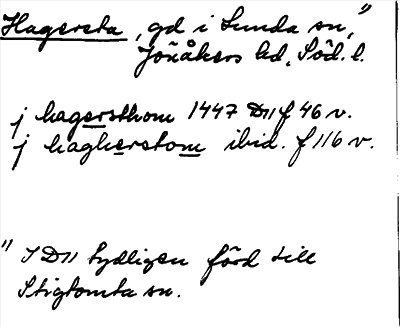 Hagersta, gd i Lunda sn,"
Jönåkers hd, Söd. l.
j hagersthom 1447 D11 f 46 v.
j hagherstom ibid. f 116 v.
" I D11 tydligen förd till
Stigtomta sn.